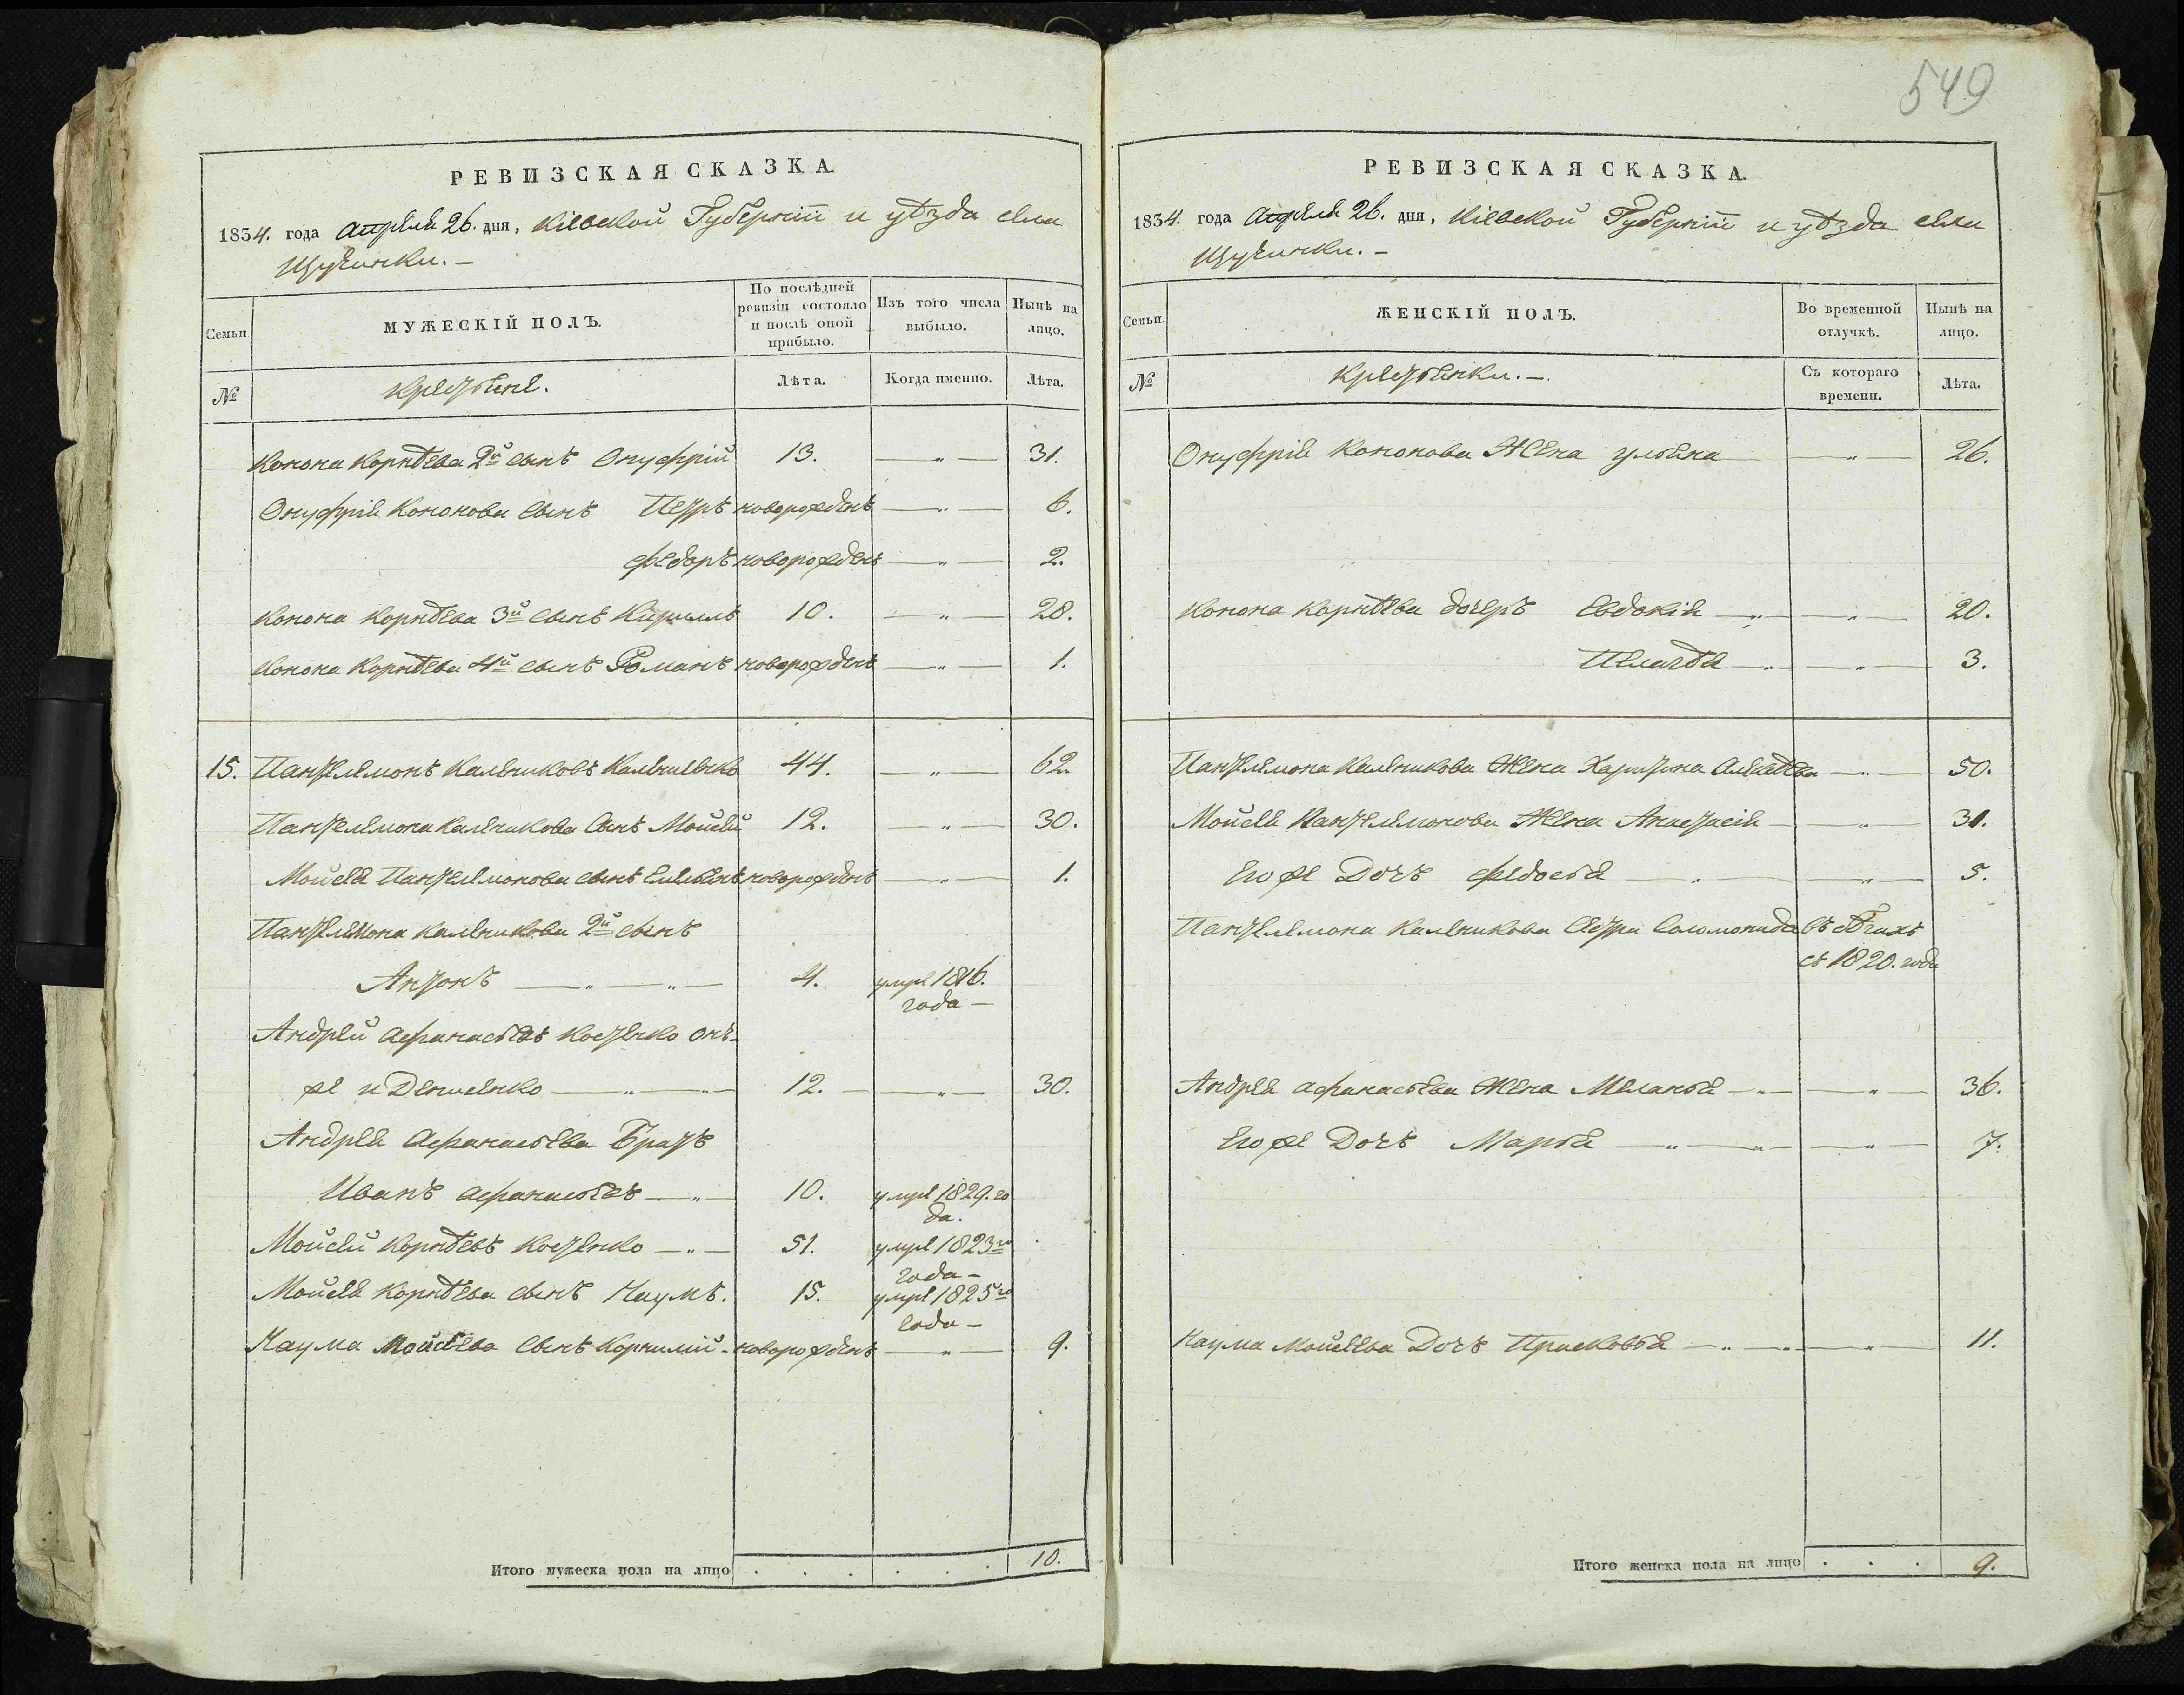 549
РЕВИЗСКАЯ СКАЗКА
1834. года апреля 26. дня, Кіевской Губерніи и уѣзда села
Щучинки. —
Семьи.
МУЖЕСКІЙ ПОЛЪ.
По послѣдней ревизіи состояло и послѣ оной прибыло.
Изъ того числа выбыло.
Нынѣ на лицо.
№
крестьяне.
Лѣта.
Когда именно.
Лѣта.
Конона Корнѣева 2й сынъ Онуфрій 13. — " — 31.
Онуфрія Кононова сынъ Петръ новорожденъ — " — 6.
Федоръ новорожденъ — " — 2.
Конона Корнѣева 3й сынъ Кириллъ 10. — " — 28.
Конона Корнѣева 4й сынъ Романъ новорожденъ — " — 1.
15. Пантелемонъ Калениковъ 44. — " — 62.
Пантелемона Каленикова сынъ Мойсей 12. — " — 30.
Мойсея Пантелемонова сынъ Емельянъ новорожденъ — " — 1.
Пантелемона Каленикова 2й сынъ
Антонъ — " — " — 4. умре 1816.
года —
Андрей Афанасьевъ Костенко онъ-
же и Денисенко — " — " — 12. — " — 30.
Андрея Афанасьева Братъ
Иванъ Афанасьевъ — " — 10. умре 1829. го
да.
Мойсей Корнѣевъ Костенко — " — 51. умре 1823го
года —
Мойсея Корнѣева сынъ Наумъ. 15. умре 1825го
года —
Наума Мойсеева сынъ Корнилій - новорожденъ — " — 9.
Итого мужеска пола на лицо . . . . . . 10.
РЕВИЗСКАЯ СКАЗКА.
1834. года апреля 26. дня, Кіевской Губерніи и уѣзда села
Щучинки. —
Семьи.
ЖЕНСКІЙ ПОЛЪ.
Во временной отлучкѣ.
Нынѣ на лицо.
№
крестьянки. —
Съ котораго времени.
Лѣта.
Онуфрія Кононова Жена Ульяна — " — 26.
Конона Корнѣева дочеръ Евдокія — " — " — 20.
Пелагѣя — " — " — 3.
Пантелемона Каленикова Жена Харитина — " — 50.
Мойсея Пантелемонова Жена Анастасія — " — 31.
Его же Дочь Федосья — " — " — 5.
Пантелемона Каленикова Сестра Соломонида въ бѣгахъ
съ 1820. года
Андрея Афанасьева Жена Меланья — " — " — 36.
Его же Дочь Марья — " — " — " — 7.
Наума Мойсеева Дочь Прасковья — " — " — " — 11.
Итого женска пола на лицо . . . 9.